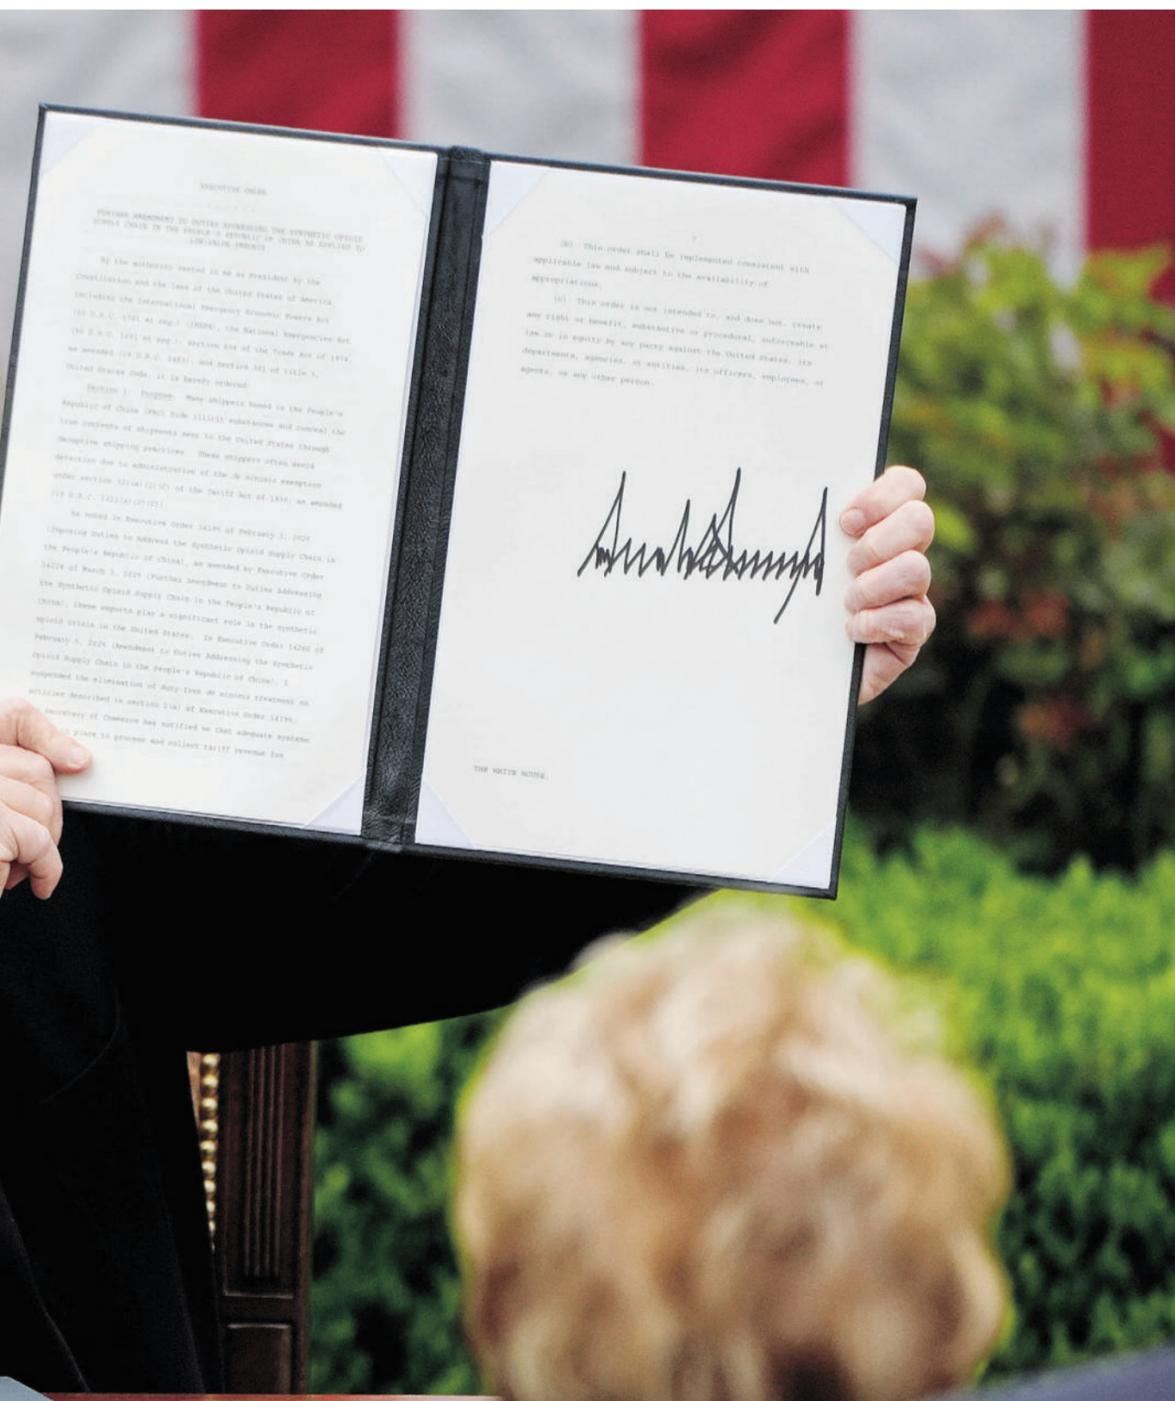 EXECUTIVE ORDER
FURTHER AMENDMENT TO DUTIES ADDRESSING THE SYNTHETIC OPIOID
SUPPLY CHAIN IN THE PEOPLE'S REPUBLIC OF CHINA AS APPLIED TO
LOW-VALUE IMPORTS
By the authority vested in me as President by the
Constitution and the laws of the United States of America,
including the International Emergency Economic Powers Act
(50 U.S.C. 1701 et seq.) (IEEPA), the National Emergencies Act
(50 U.S.C. 1601 et seq.), section 604 of the Trade Act of 1974,
as amended (19 U.S.C. 2483), and section 301 of title 3,
United States Code, it is hereby ordered:
Section 1. Purpose. Many shippers based in the People's
Republic of China (PRC) hide illicit substances and conceal the
true contents of shipments sent to the United States through
deceptive shipping practices. These shippers often avoid
detection due to administration of the de minimis exemption
under section 321(a)(2)(C) of the Tariff Act of 1930, as amended
(19 U.S.C. 1321(a)(2)(C)).
As noted in Executive Order 14195 of February 1, 2025
(Imposing Duties to Address the Synthetic Opioid Supply Chain in
the People's Republic of China), as amended by Executive Order
14228 of March 3, 2025 (Further Amendment to Duties Addressing
the Synthetic Opioid Supply Chain in the People's Republic of
China), these exports play a significant role in the synthetic
opioid crisis in the United States. In Executive Order 14200 of
February 5, 2025 (Amendment to Duties Addressing the Synthetic
Opioid Supply Chain in the People's Republic of China), I
suspended the elimination of duty-free de minimis treatment on
articles described in section 2(a) of Executive Order 14195.
Secretary of Commerce has notified me that adequate systems
place to process and collect tariff revenue for
7
(b) This order shall be implemented consistent with
applicable law and subject to the availability of
appropriations.
(c) This order is not intended to, and does not, create
any right or benefit, substantive or procedural, enforceable at
law or in equity by any party against the United States, its
departments, agencies, or entities, its officers, employees, or
agents, or any other person.
THE WHITE HOUSE,